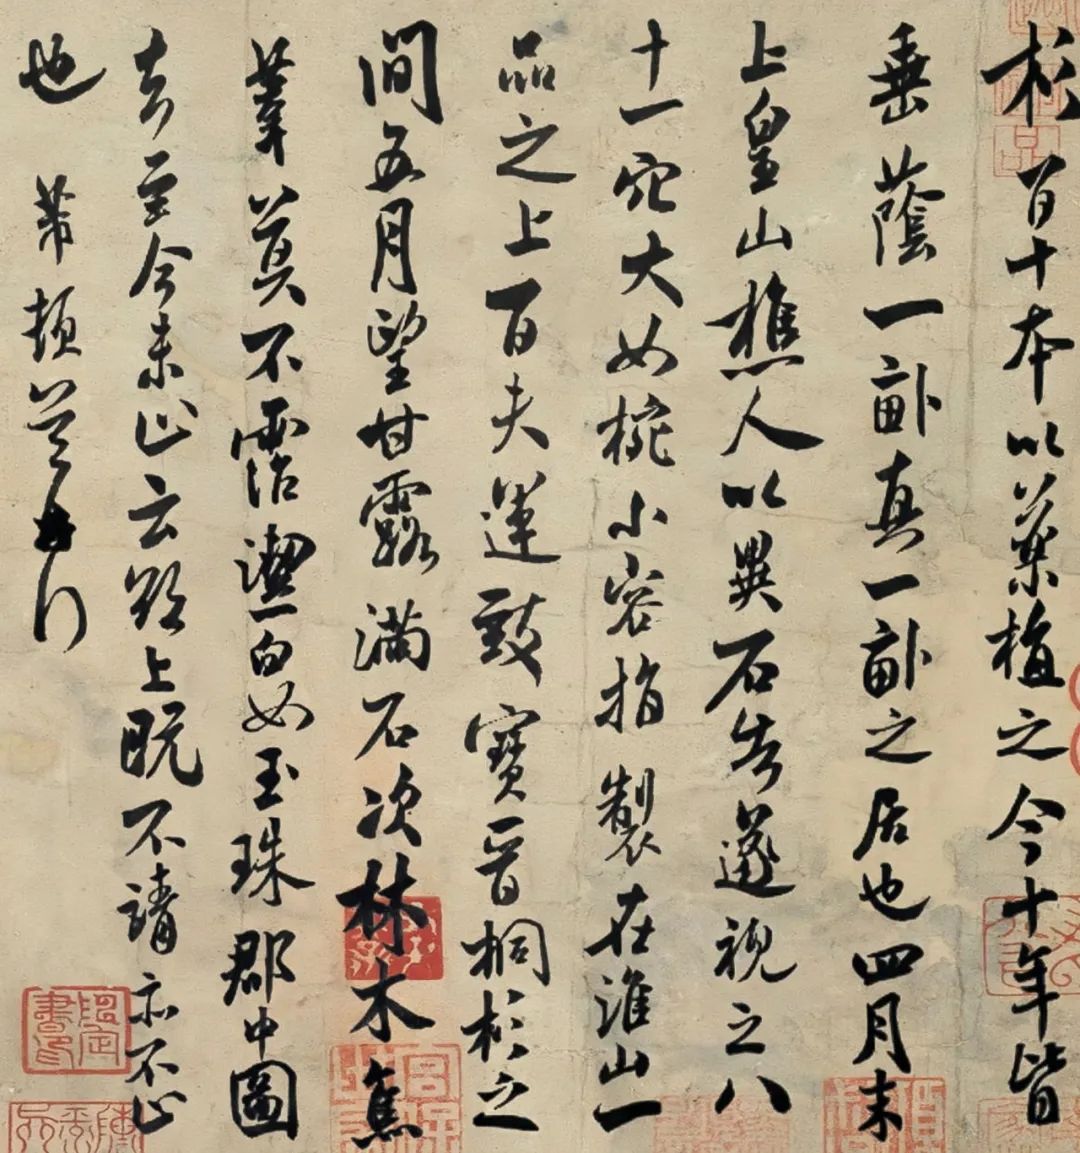 杉百十本以藥植之今十年皆
垂蔭一畝真一畝之居也四月末
上皇山樵人以異石告遂視之八
十一穴大如椀小容指製在淮山一
品之上百夫運致寶晉桐杉之
間五月望甘露滿石次林木焦
葦莫不霑潔白如玉珠郡中圖
去至今未止云欲上既不請亦不止
也 芾頓首